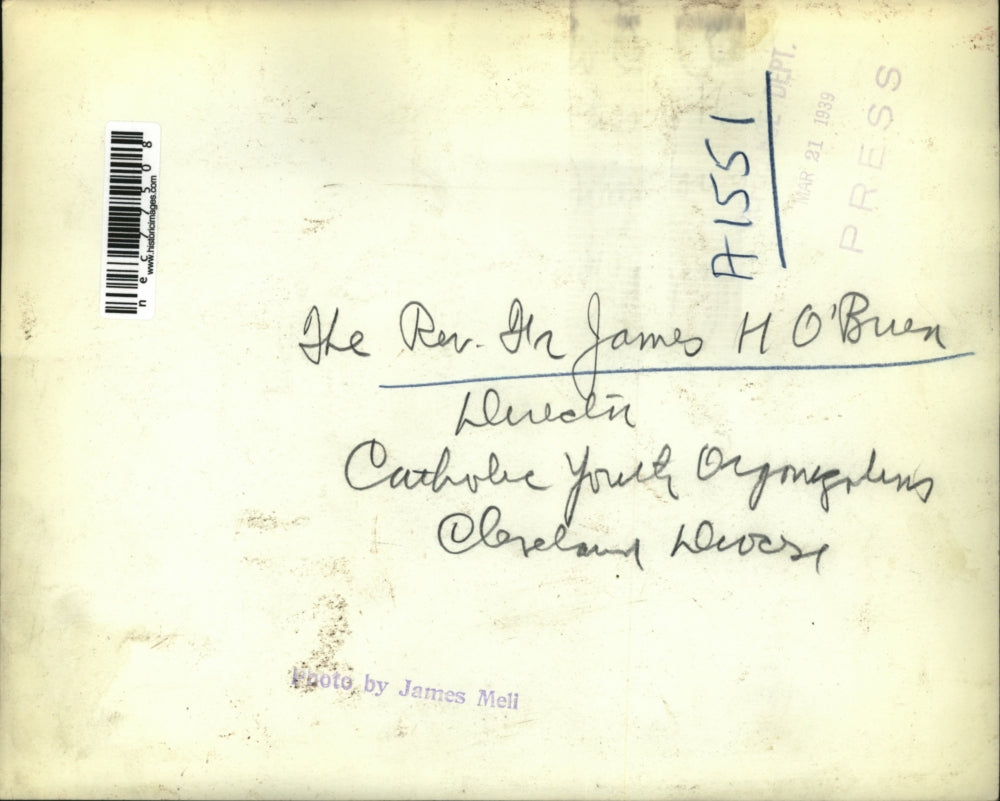 DEPT.
MAR 21 1939
PRESS
A1551
nec77508
www.historicimages.com
The Rev. Fr James H O'Brien
Director
Catholic Youth Organizations
Cleveland Diocese
Photo by James Meli